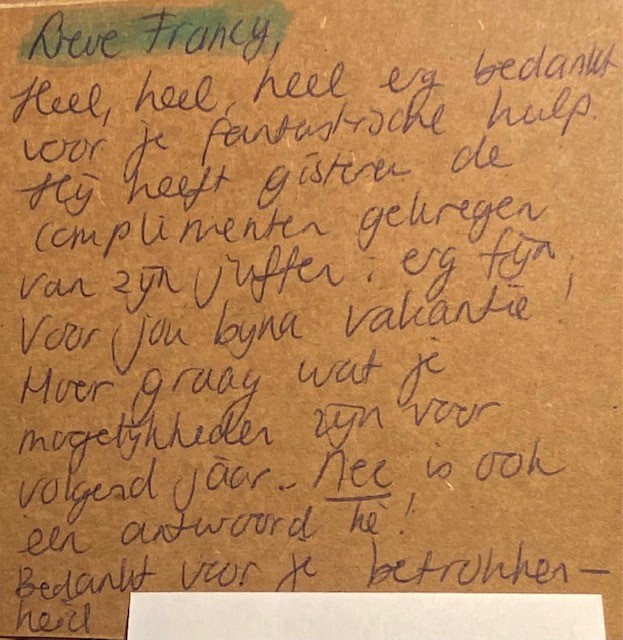 Lieve Francy,
Heel, heel, heel erg bedankt
voor je fantastische hulp.
Hij heeft gisteren de
complimenten gekregen
van zijn juffen: erg fijn.
Voor jou byna vakantie!
Hoor graag wat je
mogelijkheden zijn voor
volgend jaar. Nee is ook
een antwoord hè!
Bedankt voor je betrokken-
heid